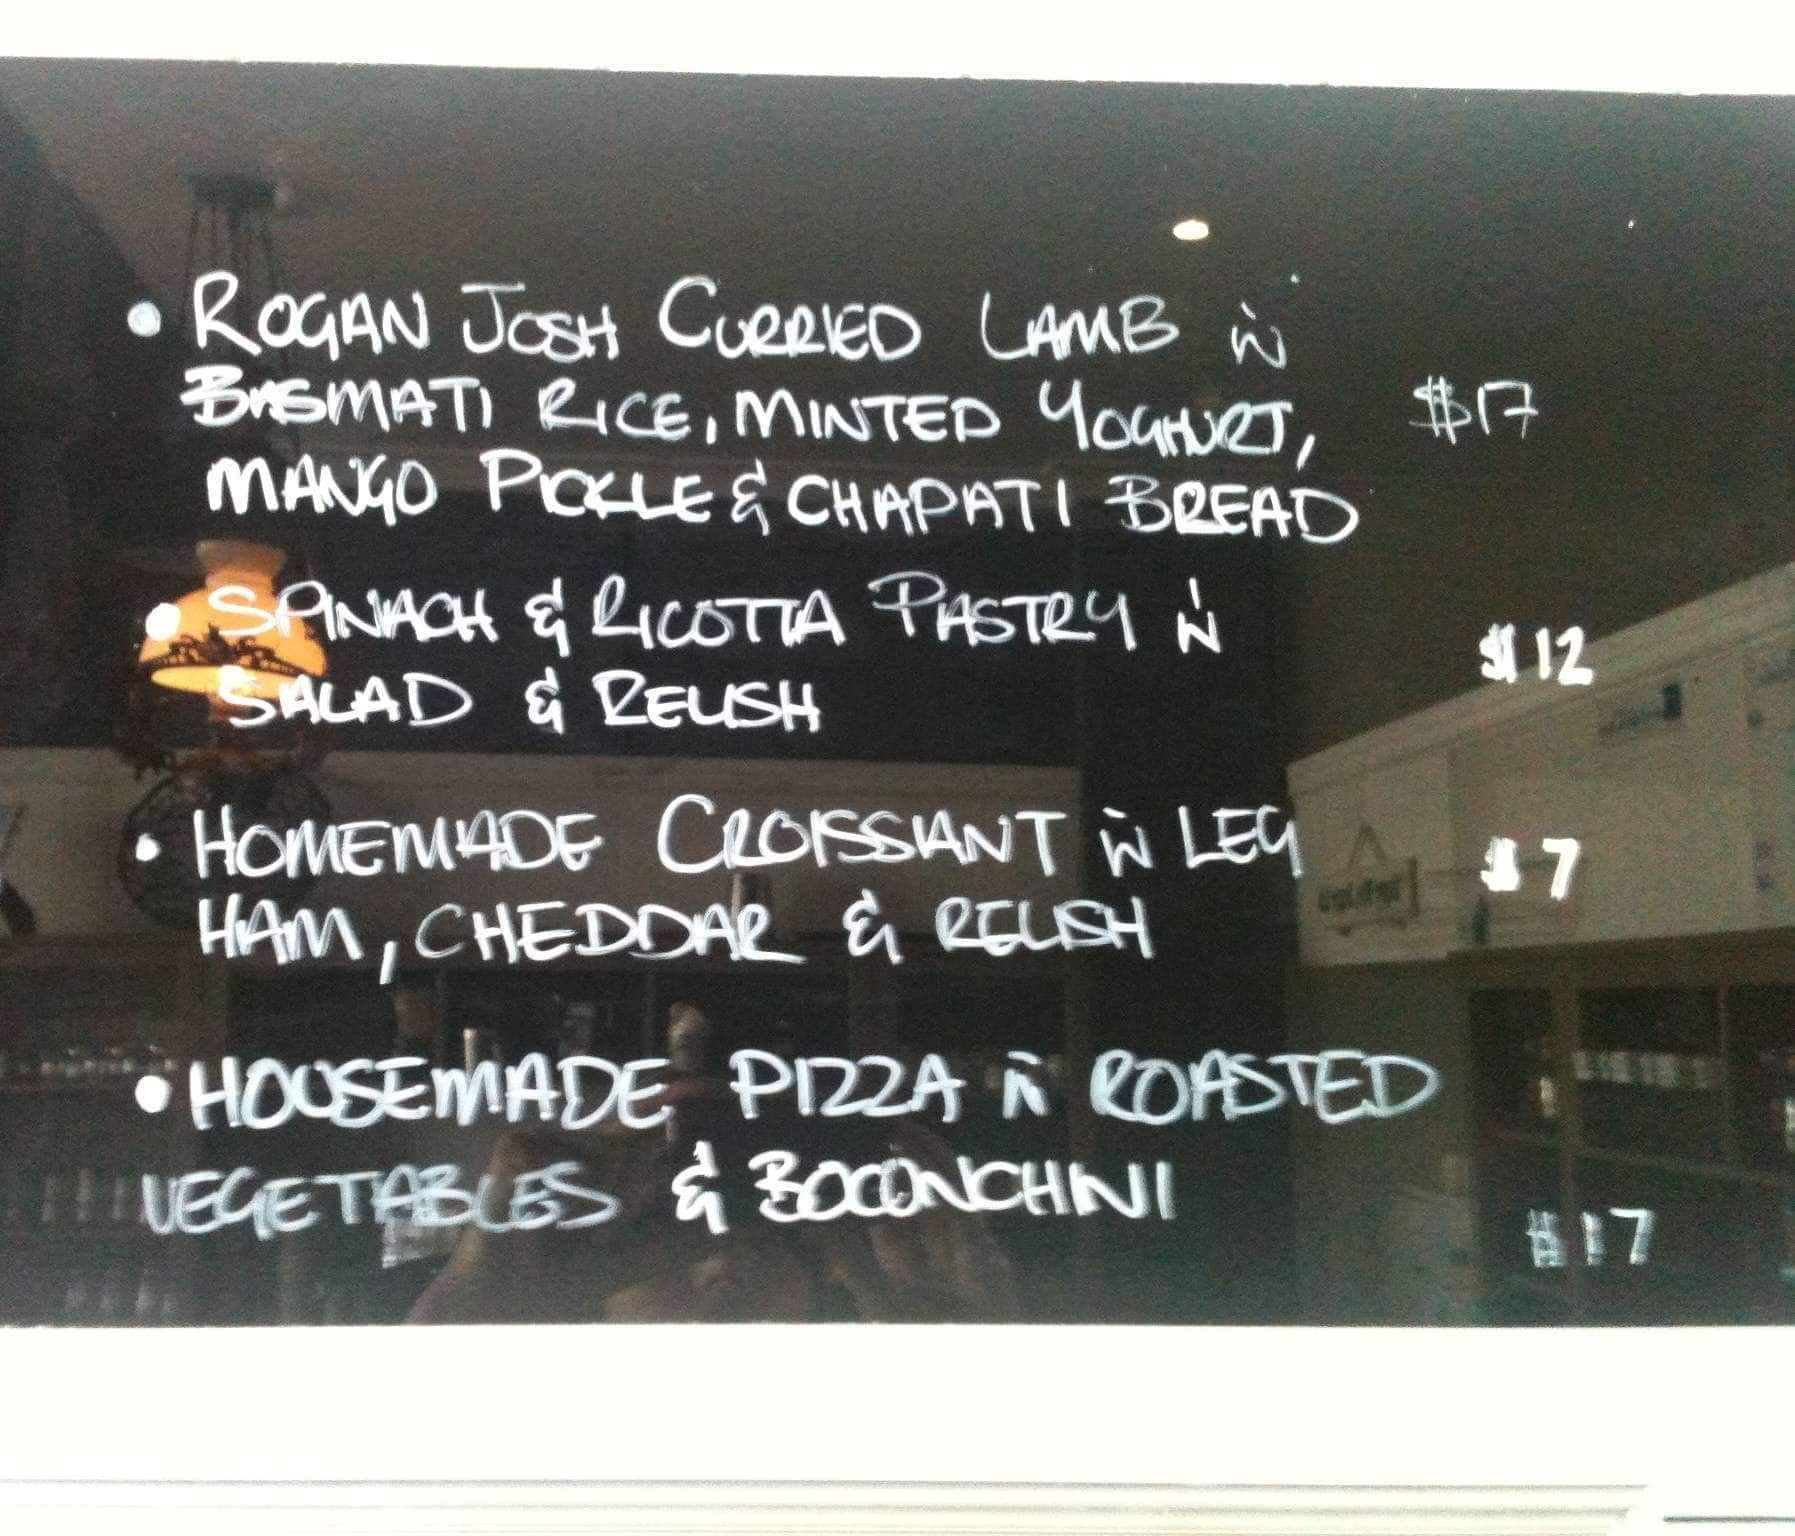 • ROGAN JOSH CURRIED LAMB W
BASMATI RICE, MINTED YOGHURT, $17
MANGO PICKLE & CHAPATI BREAD
• SPINACH & RICOTTA PASTRY W
SALAD & RELISH $12
• HOMEMADE CROISSIANT W LEG $7
HAM, CHEDDAR & RELISH
• HOUSEMADE PIZZA W ROASTED
VEGETABLES & BOCONCHINI $17